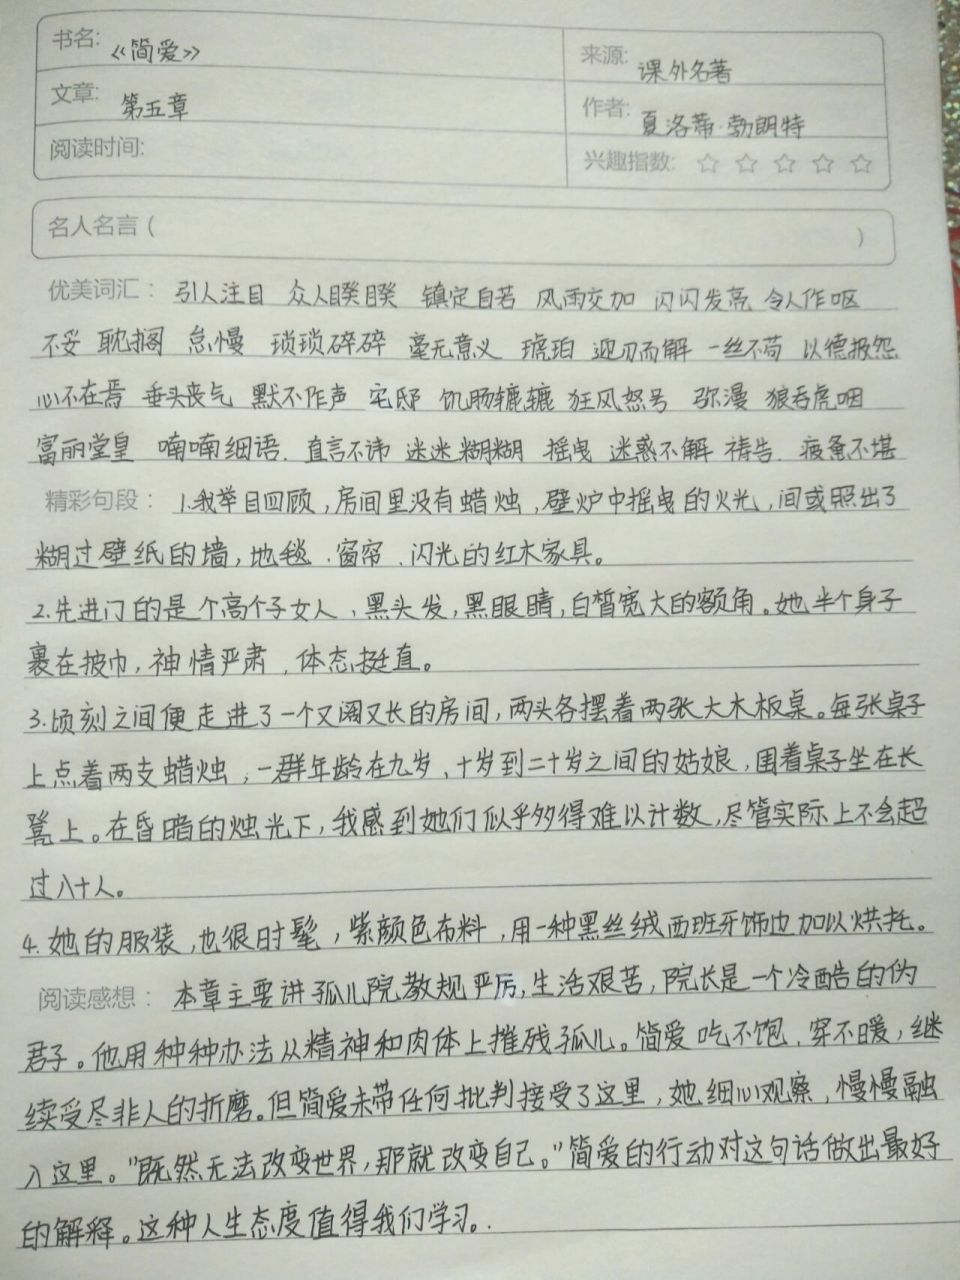 书名: 《简爱》 来源: 课外名著
文章: 第五章 作者: 夏洛蒂·勃朗特
阅读时间: 兴趣指数: ☆ ☆ ☆ ☆ ☆
名人名言 ( )
优美词汇: 引人注目 众人睽睽 镇定自若 风雨交加 闪闪发亮 令人作呕
不妥 耽搁 怠慢 琐琐碎碎 毫无意义 琥珀 迎刃而解 一丝不苟 以德报怨
心不在焉 垂头丧气 默不作声 宅邸 饥肠辘辘 狂风怒号 弥漫 狼吞虎咽
富丽堂皇 喃喃细语. 直言不讳 迷迷糊糊 摇曳 迷惑不解 祷告. 疲惫不堪
精彩句段: 1.我举目四顾,房间里没有蜡烛,壁炉中摇曳的火光,间或照出了
糊过壁纸的墙,地毯、窗帘、闪光的红木家具。
2.先进门的是个高个子女人,黑头发,黑眼睛,白皙宽大的额角。她半个身子
裹在披巾,神情严肃,体态挺直。
3.顷刻之间便走进了一个又阔又长的房间,两头各摆着两张大木板桌。每张桌子
上点着两支蜡烛,一群年龄在九岁、十岁到二十岁之间的姑娘,围着桌子坐在长
凳上。在昏暗的烛光下,我感到她们似乎多得难以计数,尽管实际上不会超
过八十人。
4.她的服装,也很时髦,紫颜色布料,用一种黑丝绒西班牙饰边加以烘托。
阅读感想: 本章主要讲孤儿院教规严厉,生活艰苦,院长是一个冷酷的伪
君子。他用种种办法从精神和肉体上摧残孤儿。简爱吃不饱、穿不暖,继
续受尽非人的折磨。但简爱未带任何批判接受了这里,她细心观察,慢慢融
入这里。"既然无法改变世界,那就改变自己。"简爱的行动对这句话做出最好
的解释。这种人生态度值得我们学习。.